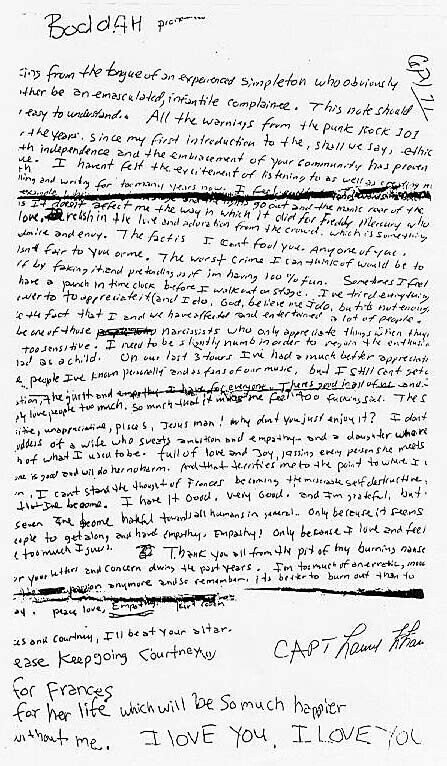 BoddAH
ing from the tongue of an experienced simpleton who obviously
ther be an emasculated, infantile complainee. This note should
easy to understand. All the warnings from the punk rock 101
the years. since my first introduction to the, shall we say, ethic
th independence and the embracement of your community has proven
ue. I havent felt the excitement of listening to as well as creating m
and writing for too many years now. I feel
go out and the manic roar of the
It doesnt affect me the way in which it did for Freddy Mercury who
love, relish in the love and adoration from the crowd. which is something
dmire and envy. The fact is I cant fool you. Any one of you.
isnt fair to you or me. The worst crime I can think of would be to
by faking it and pretending as if im having 100% fun. Sometimes I feel
have a punch in time clock before I walk out on stage. I've tried everything
power to appreciate it (and I do, God, believe me I do, but it's not enough
the fact that I and we have affected and entertained a lot of people.
be one of those narcissists who only appreciate things when they
too sensitive. I need to be slightly numb in order to regain the enthusia
had as a child. On our last 3 tours I've had a much better appreciati
people I've known personally and as fans of our music, but I still cant get
tion, the guilt and empathy I have for everyone. Theres good in all of us and
ply love people too much. So much that it makes me feel too fucking sad. The s
itive, unappreciative, pisces, Jesus man! why dont you just enjoy it? I dont
oddess of a wife who sweats ambition and empathy and a daughter who re
h of what I use to be. full of love and Joy, kissing every person she meets
one is good and will do her no harm. And that terrifies me to the point to where I
I cant stand the thought of Frances becoming the miserable self destructive,
become. I have it Good. very Good. and I'm grateful, but
seven I've become hateful towards all humans in general. Only because it seems
eople to get along and have empathy. Empathy! Only because I love and feel
too much I guess. Thank you all from the pit of my burning nause
or your letters and concern during the past years. I'm too much of an erratic, moo
passion anymore and so remember, its better to burn out than to
peace love, Empathy. kurt cobain
es and Courtney, I'll be at your altar.
ease Keep going Courtney
for Frances
for her life which will be so much happier
without me. I LOVE YOU. I LOVE YOU
CAPT